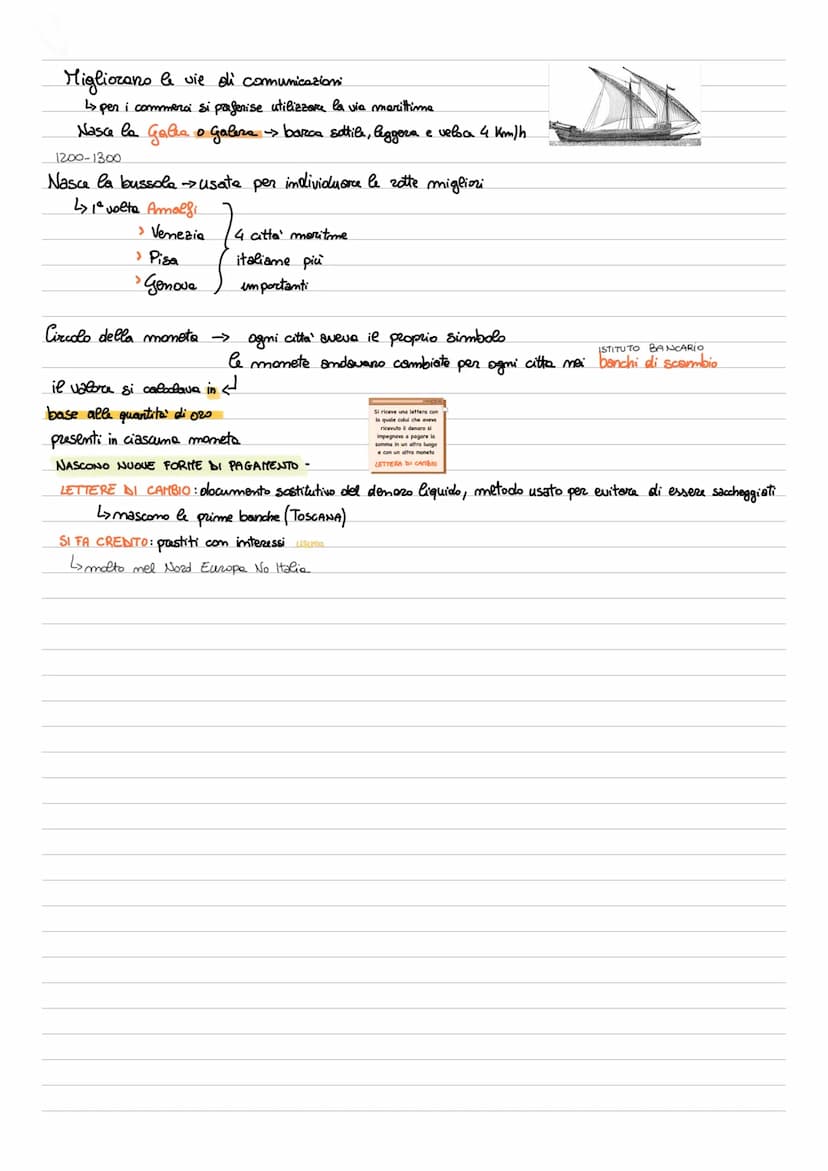 Migliorano le vie di comunicazioni
↳ per i commerci si preferisce utilizzare la via marittima
Nasce la Galea o Galera → barca sottile, leggera e veloce 4 Km/h
1200-1300
Nasce la bussola → usata per individuare le rotte migliori
↳ 1ª volta Amalfi
> Venezia 4 citta' marittime
> Pisa italiane più
> Genova importanti
Circolo della moneta → ogni citta' aveva il proprio simbolo
ISTITUTO BANCARIO
le monete andavano cambiate per ogni citta nei banchi di scambio
il valore si calcolava in ↵
base alla quantita' di oro
presenti in ciascuna moneta
Si riceve una lettera con
la quale colui che aveva
ricevuto il denaro si
impegnava a pagare la
somma in un altro luogo
e con un altra moneta
LETTERA DI CAMBIO
NASCONO NUOVE FORME DI PAGAMENTO -
LETTERE DI CAMBIO: documento sostitutivo del denaro liquido, metodo usato per evitare di essere saccheggiati
↳ nascono le prime banche (TOSCANA)
SI FA CREDITO: prestiti con interessi
↳ molto nel Nord Europa No Italia